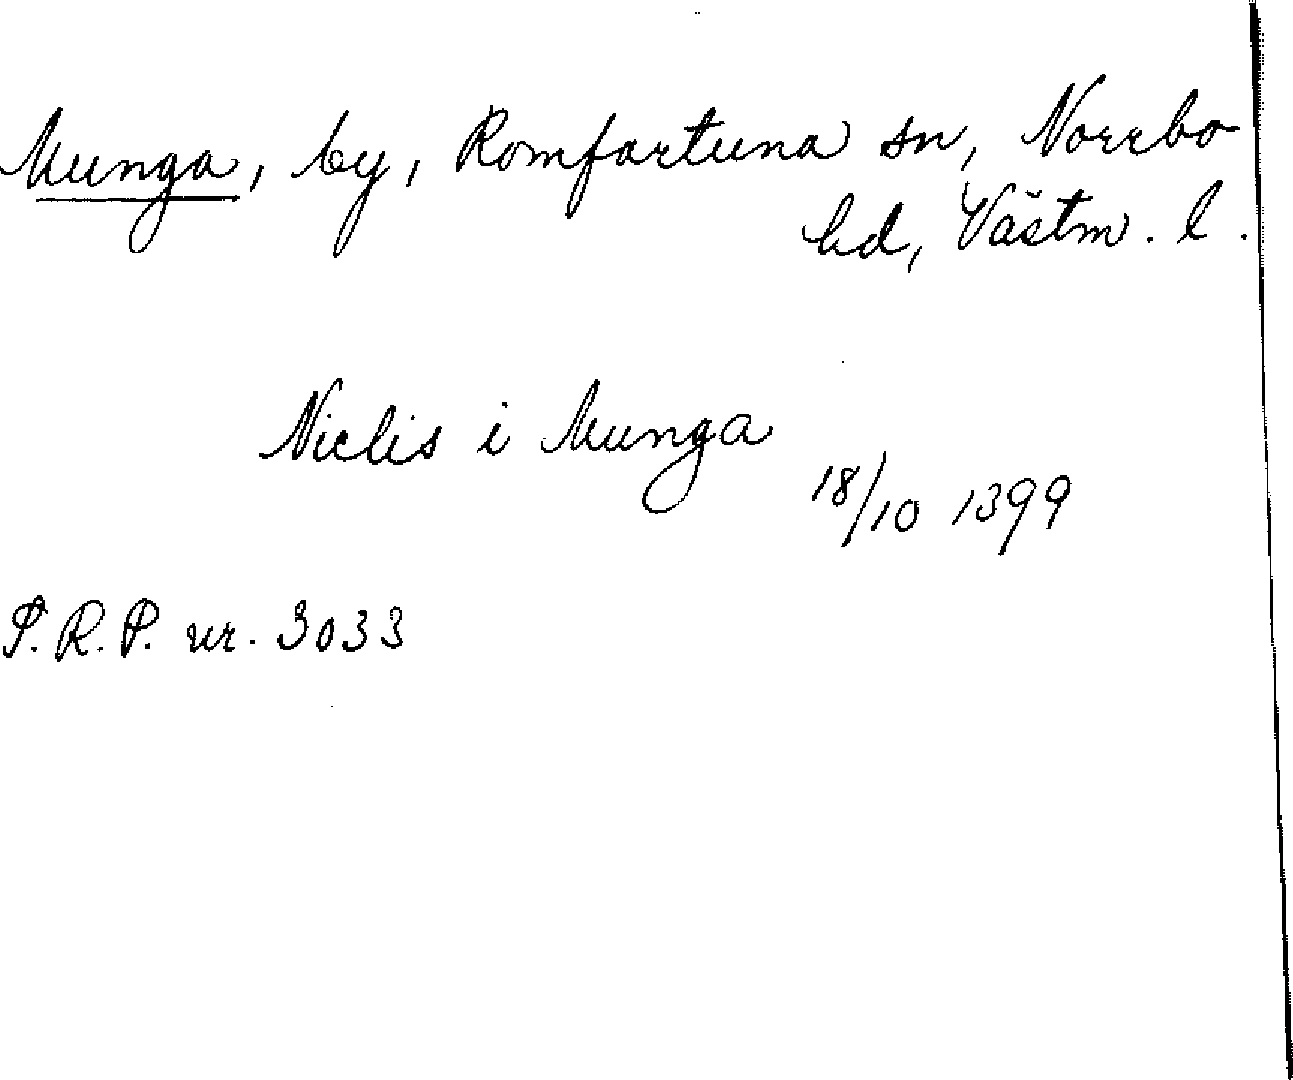 Munga, by, Romfartuna sn, Norrbo
hd, Västm. l.
Niclis i Munga
18/10 1399
P.R.P. nr. 3033